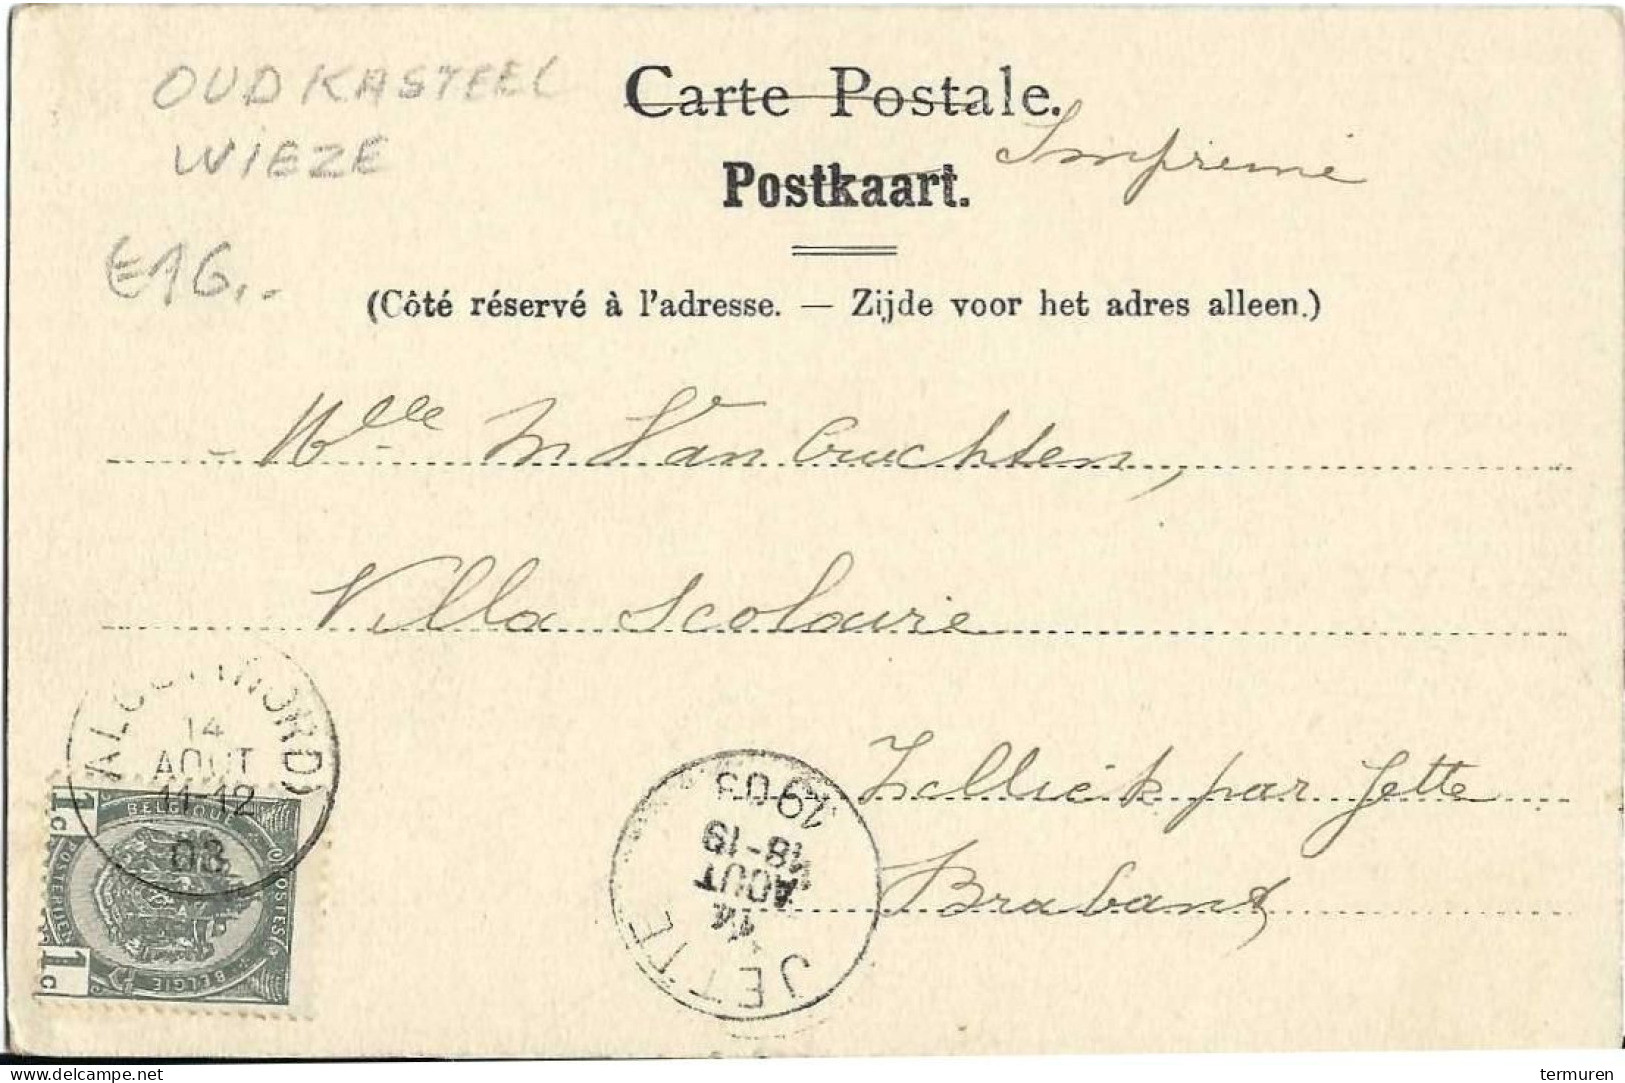 OUD KASTEEL
WIEZE
€16,-
Carte Postale.
Imprimé
Postkaart.
(Côté réservé à l'adresse. — Zijde voor het adres alleen.)
Mlle M Van Cruchten,
Villa Scolaire
Zellick par Jette
Brabant
(NORD)
14
AOUT
11-12
03
BELGIQUE
POSTES
POSTERIJEN
BELGIE
1c
1c
JETTE
14
AOUT
18-19
1903
delcampe.net
termuren